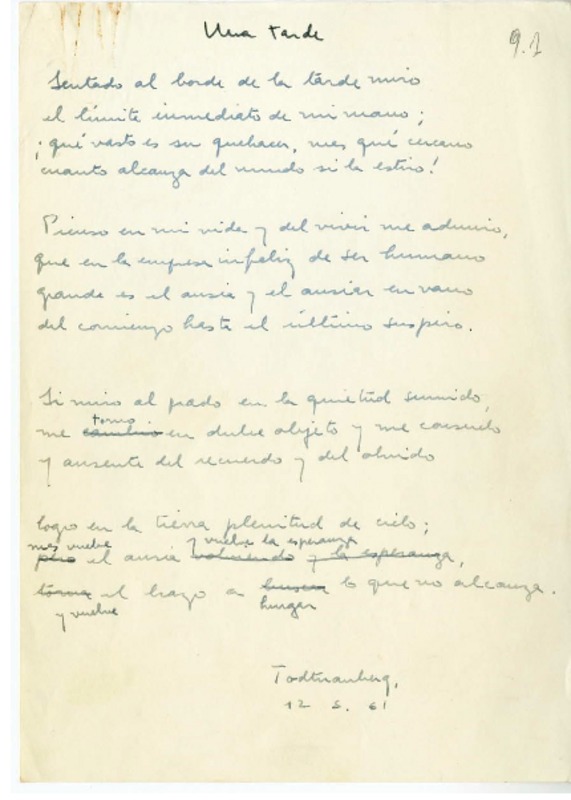 Una tarde
9.1
Sentado al borde de la tarde miro
el límite inmediato de mi mano;
¡qué vasto es su quehacer, mas qué cercano
cuanto alcanza del mundo si la estiro!
Pienso en mi vida y del vivir me admiro,
que en la empresa infeliz de ser humano
grande es el ansia y el ansiar en vano
del comienzo hasta el último suspiro.
Si miro al prado en la quietud sumido,
torno
me cambio en dulce objeto y me consuelo
y ausente del recuerdo y del olvido
logro en la tierra plenitud de cielo;
mas vuelve y vuelve la esperanza
pero el ansia volviendo y la esperanza,
torna el brazo a buscar lo que no alcanza.
y vuelve hurgar
Todtnauberg,
12 5. 61